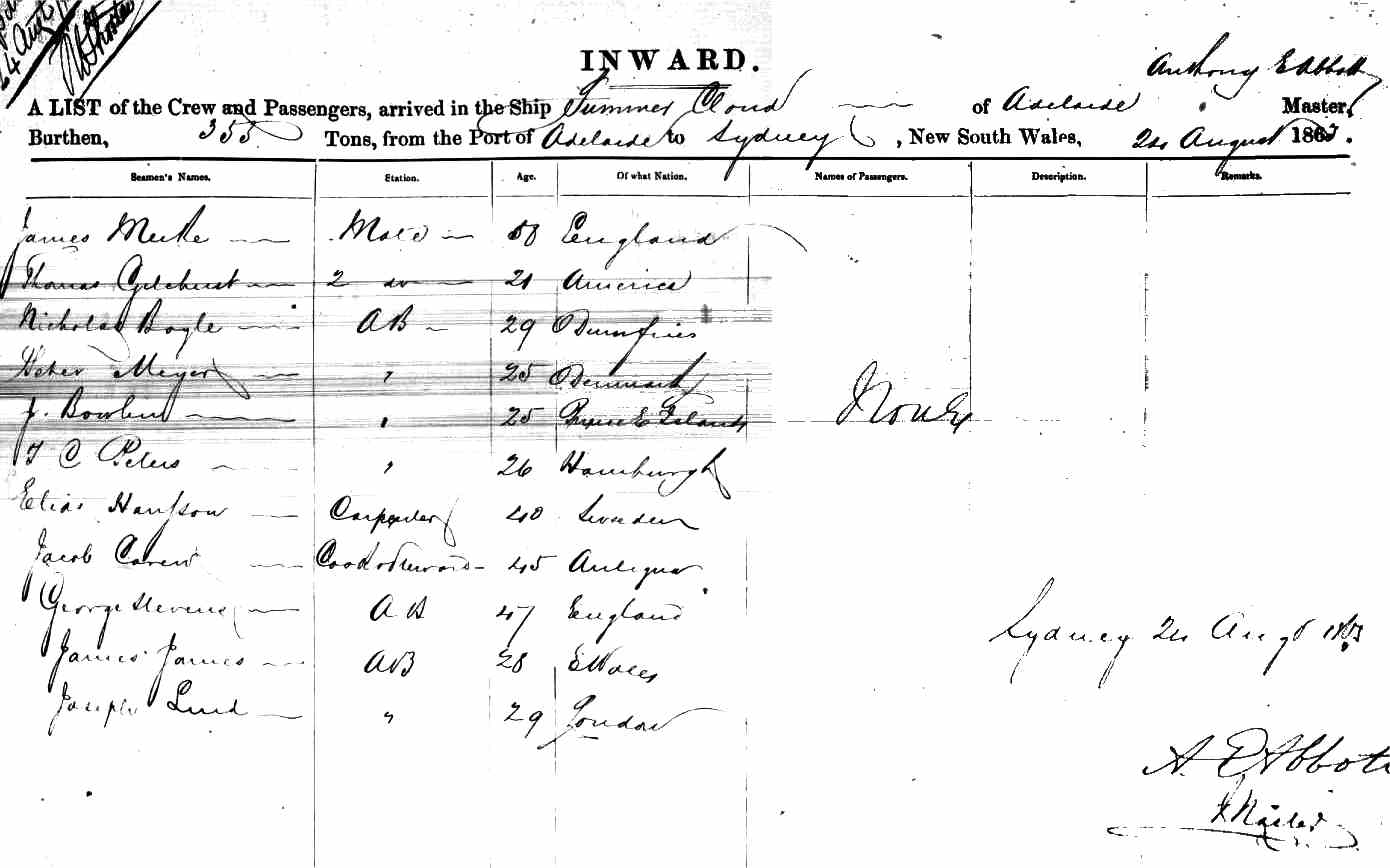 24 Augt
INWARD.
Anthony E Abbott
A LIST of the Crew and Passengers, arrived in the Ship Summer Cloud of Adelaide Master,
Burthen, 355 Tons, from the Port of Adelaide to Sydney, New South Wales, 24 August 186
Seamen's Names. Station. Age. Of what Nation. Names of Passengers. Description. Remarks.
James Mate England
Thomas Gilchrist 2 do 21 America
Nicholas Boyle AB 29 Dumfries
Meyer " 25 Denmark
J. " 25 Prince E Island None
C Peters " 26 Hamburgh
Elias Hansson Carpenter 40 Sweden
Jacob Carew Cook & Steward 45 Antigua
George Stevens AB 47 England
Sydney 24 Augt
James James AB 28 Wales
Joseph Lund " 29 London
A. E Abbott